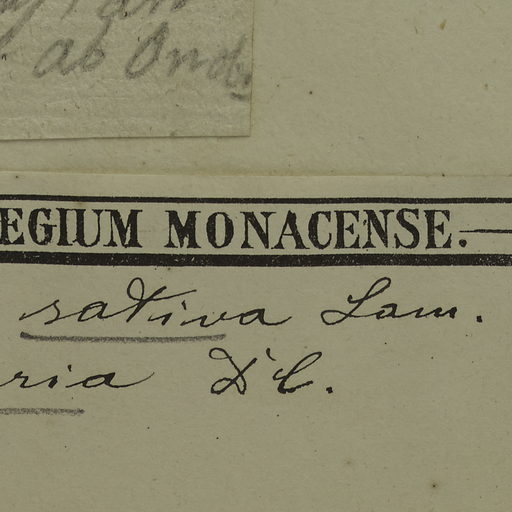 ab Ond
EGIUM MONACENSE.
sativa Lam.
ria D'C.